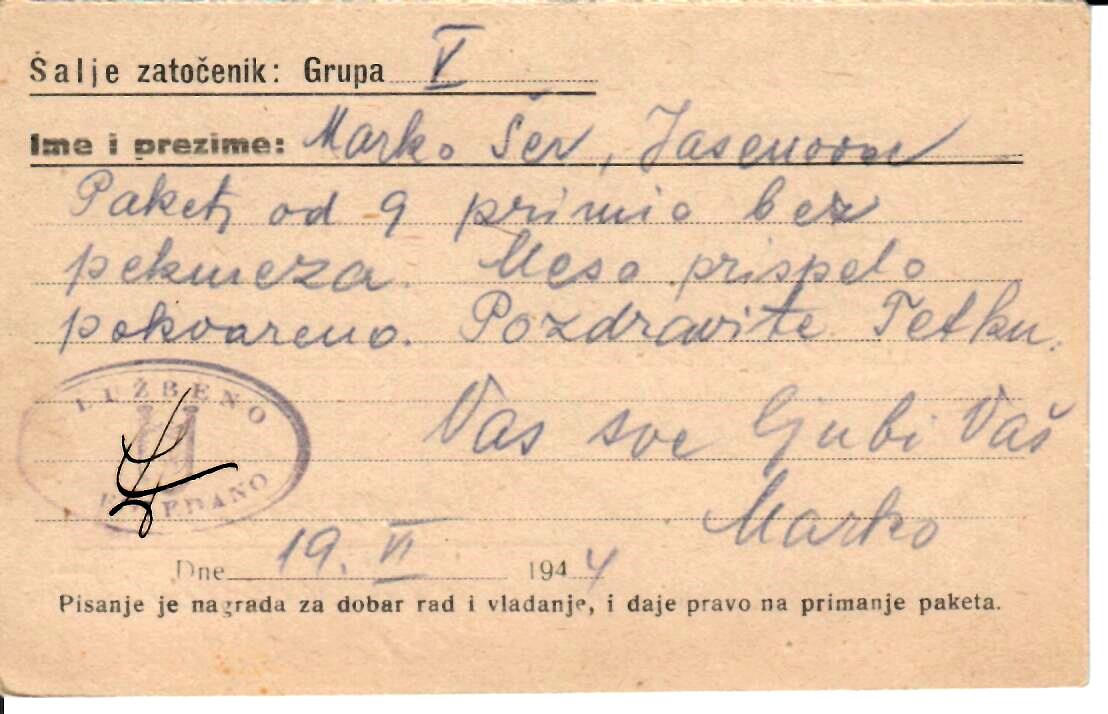 Šalje zatočenik: Grupa V
Ime i prezime: Marko Šer, Jasenovac
Paket od 9 primio bez
pekmeza. Meso prispelo
pokvareno. Pozdravite Tetku.
Vas sve ljubi Vaš
Marko
LUŽBENO
U
EDANO
Dne 19. VI 1944
Pisanje je nagrada za dobar rad i vladanje, i daje pravo na primanje paketa.